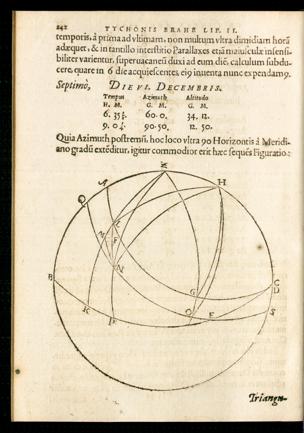 242 TYCHONIS BRAHE LIB. II.
temporis, à prima ad vltimam, non multum vltra dimidiam horã
adæquet, & in tantillo interstitio Parallaxes etiã maiusculæ insensi-
biliter varientur, superuacaneũ duxi ad eum diẽ, calculum subdu-
cere, quare in 6 die acquiescentes, eiꝰ inventa nunc expendamꝰ.
Septimò, DIE VI. DECEMBRIS.
Tempus Azimuth Altitudo
H. M. G. M. G. M.
6. 35 60. 0. 34. 12.
9. 0 90. 50. 12. 50.
Quia Azimuth postremũ, hoc loco vltra 90 Horizontis à Meridi-
ano gradũ extẽditur, igitur commodior erit hæc sequẽs Figuratio:
H
Q
F
N
B
G
C
D
K
O
E
S
Triangu-